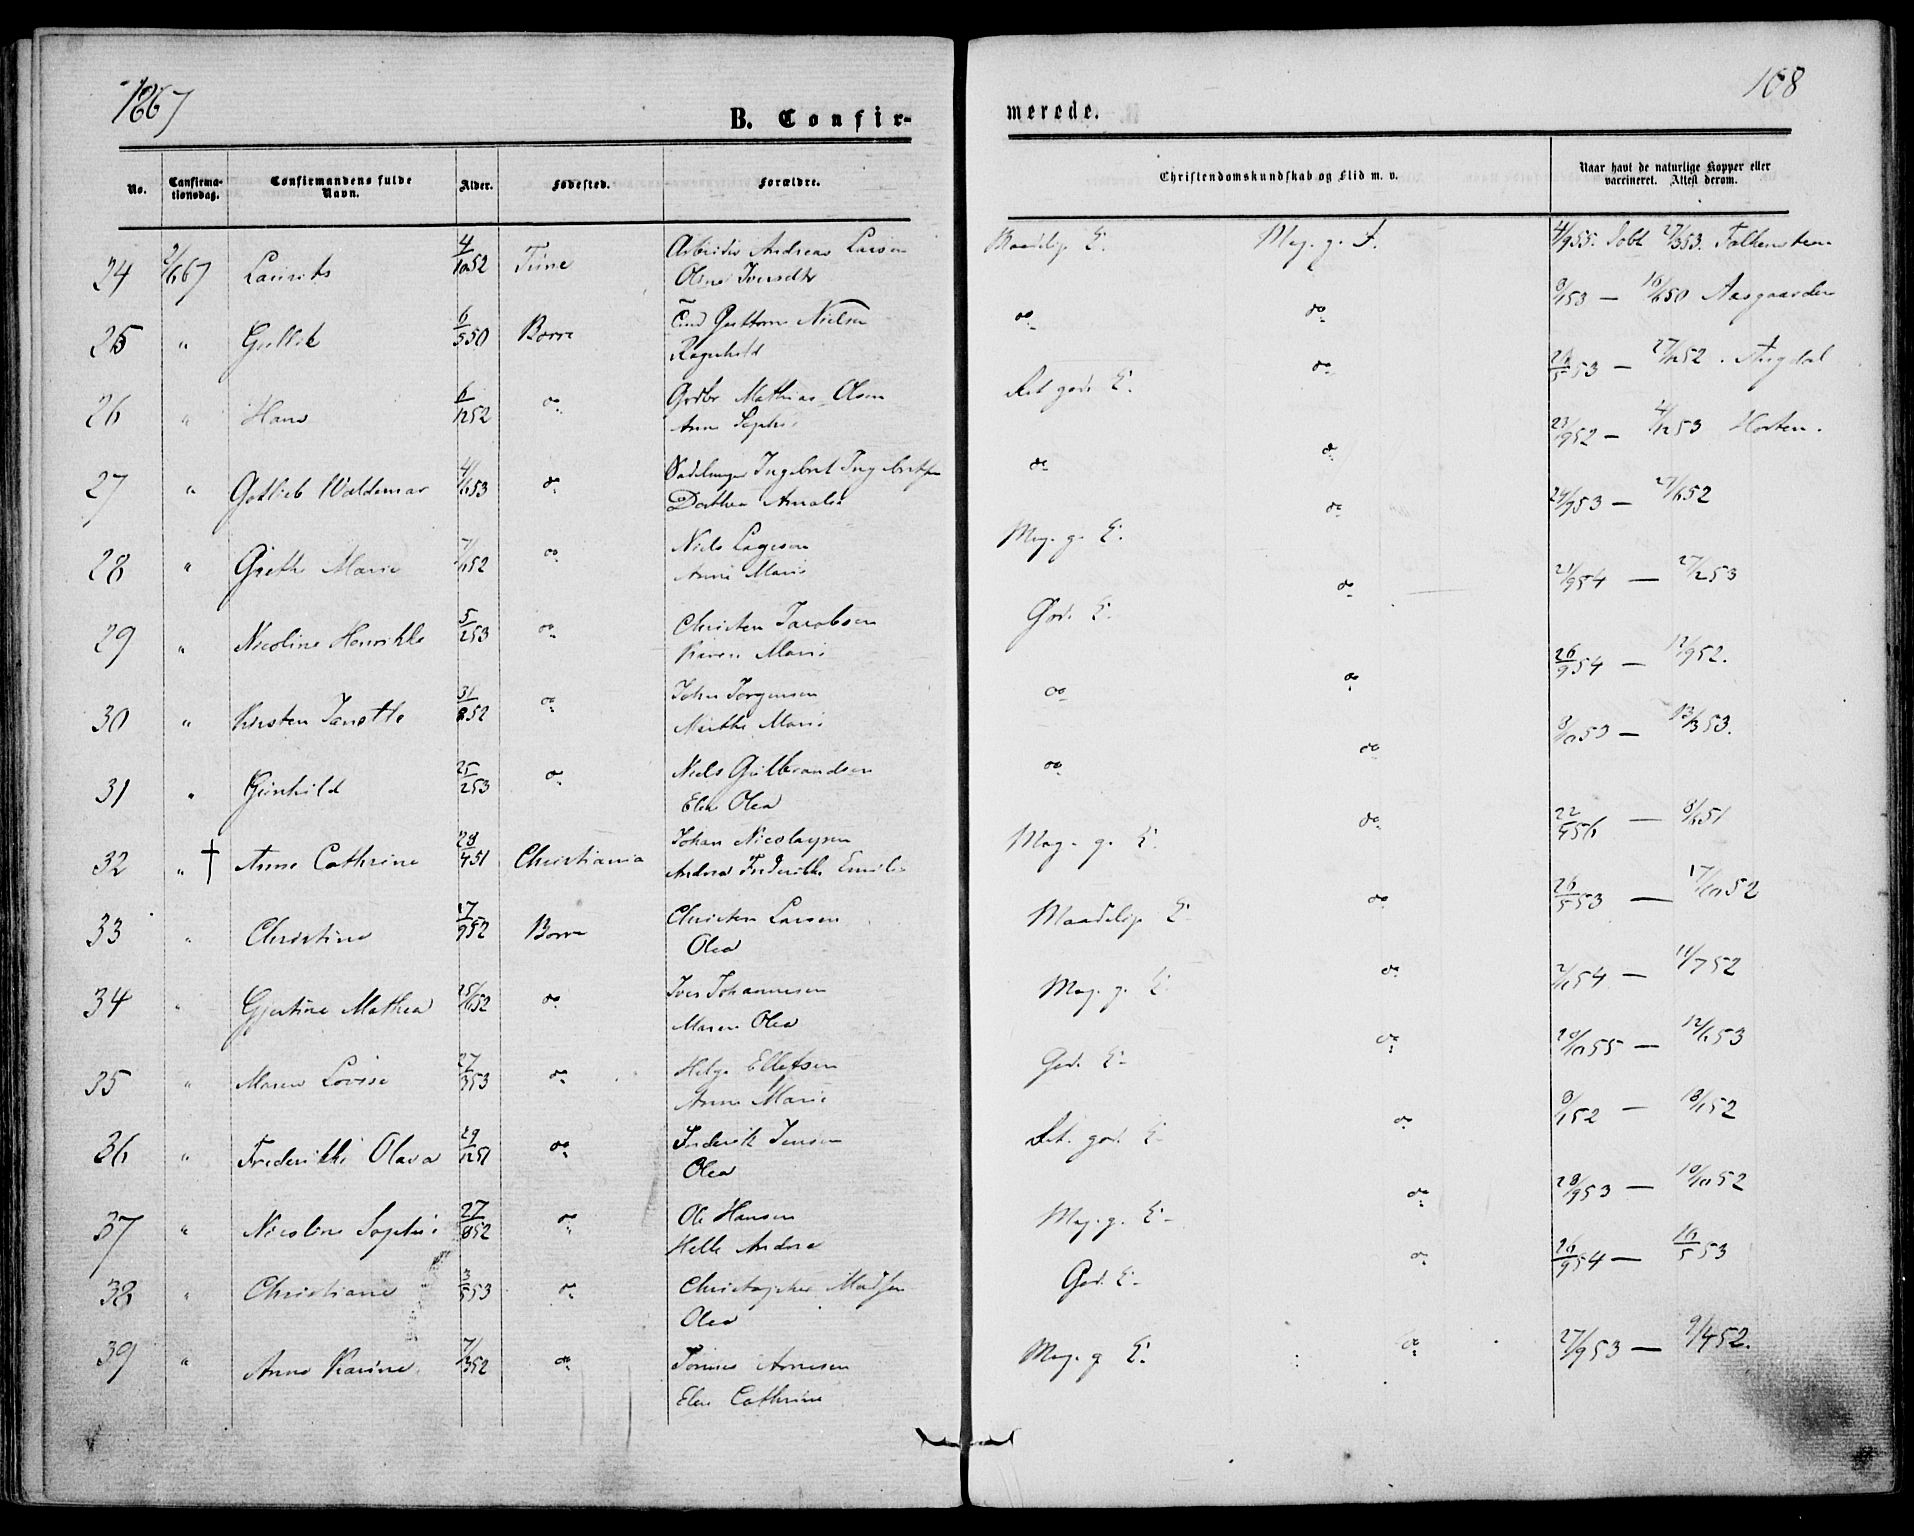 1867
108
B. Confir-
merede.
No.
Confirma-
tionsdag.
Confirmandens fulde
Navn.
Alder.
Fødested.
Forældre.
Christendomskundskab og Flid m. v.
Naar havt de naturlige Kopper eller
vaccineret. Attest derom.
24 Laurits 4/10 52 Tune Arbeider Andreas Larsen Maadelig E. Meg. g. F. 4/9 55. Døbt 27/3 53. Falkensteen
25 " Gullik 6/5 50 Borre Nielsen do do 8/1 53 — Aasgaarden
Ragnhild
26 " Hans 6/12 52 do Grdbr Mathias Olsen Ret god E. do 53 — 52.
Anne Sophie
27 " Gotlieb Waldemar do Ingebret Ingebretsen do do 23/9 52 — 4/12 53 Horten.
Dorthea Amalia
28 " Grethe Marie do Niels Lagesen Meg. g. E. do 24/9 53 —
Anne Marie
29 " Nicoline Henrikke 5/2 53 do Christen Jacobsen God E. do 21/9 54 — 27/2 53
Karen Marie
30 " Kirsten Janette 31/8 52 do John Jørgensen do do 26/9 54 — 12/9 52.
Marie
31 " Gunhild 25/2 53 do Niels Gulbrandsen do do 53 — 13/3 53.
Elen Olea
32 " † Anne Cathrine 28/4 51 Christiania Johan Nicolaysen Meg. g. E. do 22/4 56 — 8/6 51
Andrea Frederikke Emilie
33 " Christine 17/9 52 Borre Christen Larsen Maadelig E. do 26/5 53 — 17/10 52
Olea
34 " Gjertine Mathea do Iver Johannesen Meg. g. E. do 54 — 11/7 52
Maren Olea
35 " Maren Lovise 27/3 53 do Helge Ellefsen God. E. do 55 — 12/6 53
Anne Marie
36 " Frederikke Olava 29/12 51 do Frederik Jensen Ret. god. E. do 8/1 52 — 18/1 52
Olea
37 " Nicoline Sophie 27/8 52 do Ole Hansen Meg. g. E. do 28/9 53 — 10/10 52
Helle Andrea
38 " Christiane 3/5 53 do Christopher Madsen God. E. do 26/9 54 — 16/5 53
Olea
39 " Anne Karine 7/3 52 do Arnesen Meg. g E. do 27/9 53 — 9/4 52.
Elen Cathrine